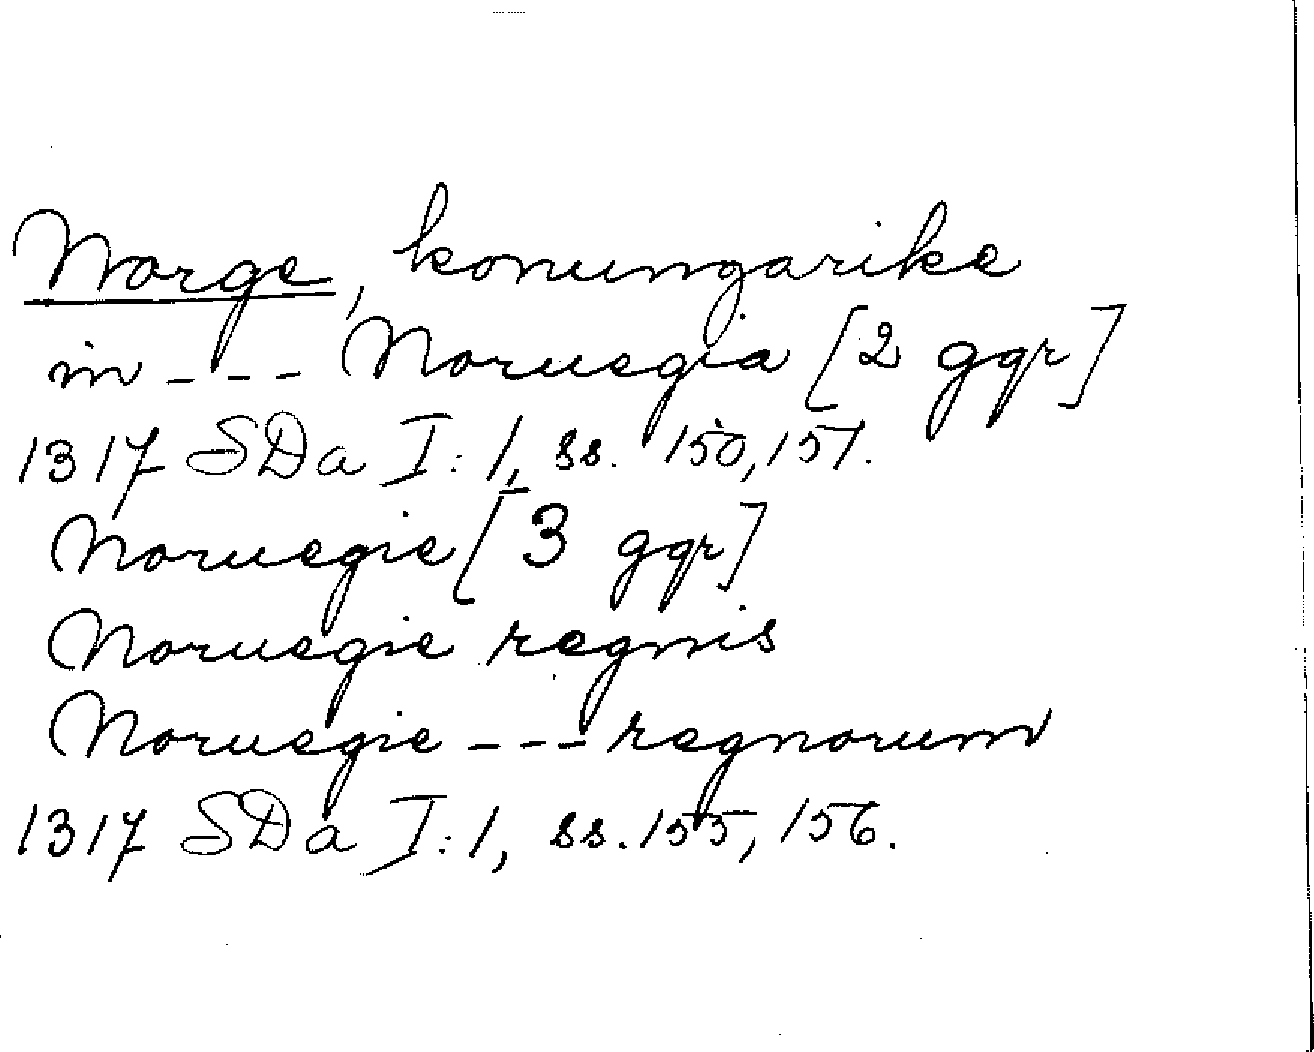 Norge, konungarike
in - - - Noruegia [2 ggr]
1317 SDa I: 1, ss. 150, 151.
Noruegie [3 ggr]
Noruegie regnis
Noruegie - - - regnorum
1317 SDa I: 1, ss. 155, 156.